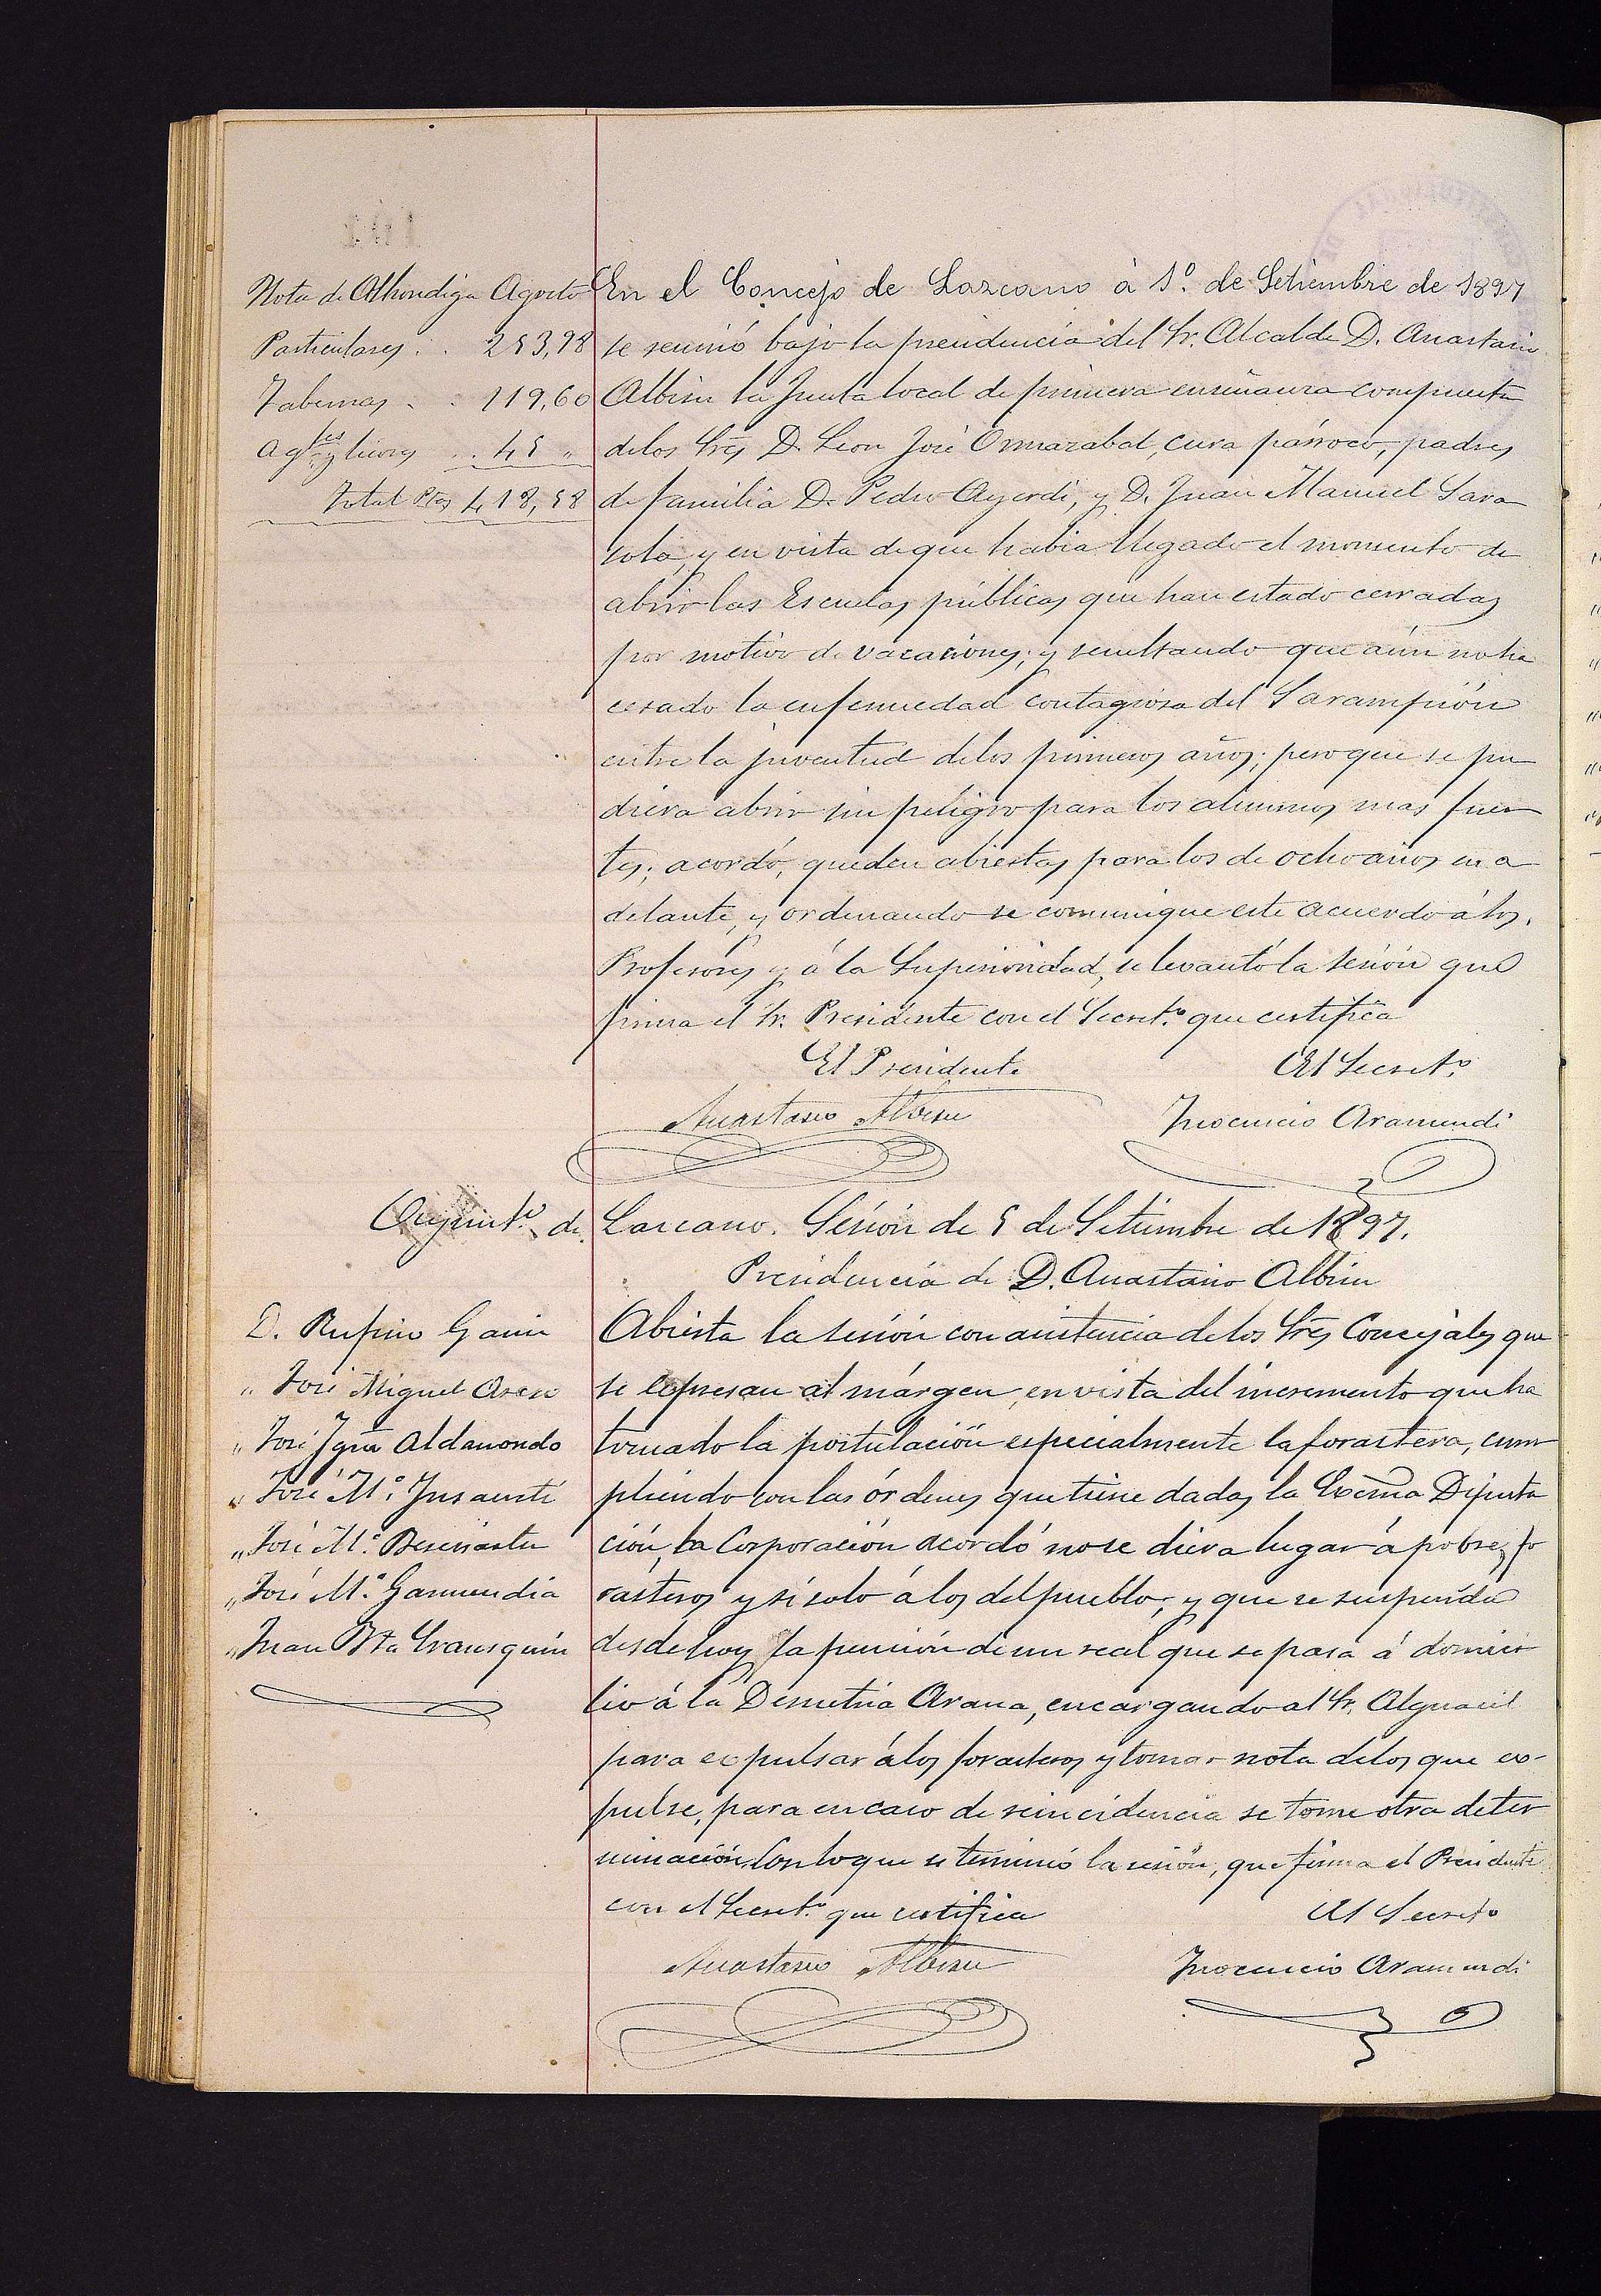 Nota de Alhondiga Agosto
Particulares . . 253,98
Tabernas . . 119,60
Ag.tes y licores . . 45 "
Total Ptas 418,58
En el Concejo de Lazcano à 1º. de Setiembre de 1897
se reunió bajo la presidencia del Sr. Alcalde D. Anastasio
Albisu la Junta local de primera enseñanza compuesta
delos Sres D. Leon José Ormazabal, cura párroco, padres
de familia D. Pedro Ayerdi, y D. Juan Manuel Sara
sola, y en vista de que habia llegado el momento de
abrir las Escuelas públicas que han estado cerradas
por motivo de vacaciones; y resultando que aún no ha
cesado la enfermedad contagiosa del Sarampión
entre la juventud delos primeros años; pero que se pu
diera abrir sin peligro para los alumnos mas fuer
tes; acordó, queden abiertas para los de ocho años en a
delante, y ordenando se comunique este acuerdo á los.
Profesores y á la Superioridad, se levantó la sesión que
firma el Sr. Presidente con el Secret.º que certifica
El Presidente El Secret.º
Anastasio Albisu Inocencio Aramendi
Ayunt.º de Lazcano. Sesión de 5 de Setiembre de 1897.
Presidencia de D. Anastasio Albisu
D. Rufino Gain
" José Miguel
" José Ign Aldanondo
" José M.ª Insausti
" José M.ª
" José M.ª Garmendia
" Juan Bta
Abierta la sesión con asistencia delos Sres Concejales que
se expresan al márgen, en vista del incremento que ha
tomado la postulación especialmente la forastera, cum
pliendo con las órdenes que tiene dadas la Excma Diputa
ción, la Corporación acordó no se diera lugar á pobres fo
rasteros y si solo á los del pueblo; y que se suspenda
desde hoy la pensión de un real que se pasa á domici
lio á la Demetria Arana, encargando al Sr. Alguacil
para expulsar álos forasteros y tomar nota delos que ex-
pulse, para en caso de reincidencia se tome otra deter
minación. Con lo que se terminó la sesión, que firma el Presidente
con el Secret.º que certifica El Secreto
Anastasio Albisu Inocencio Aramendi